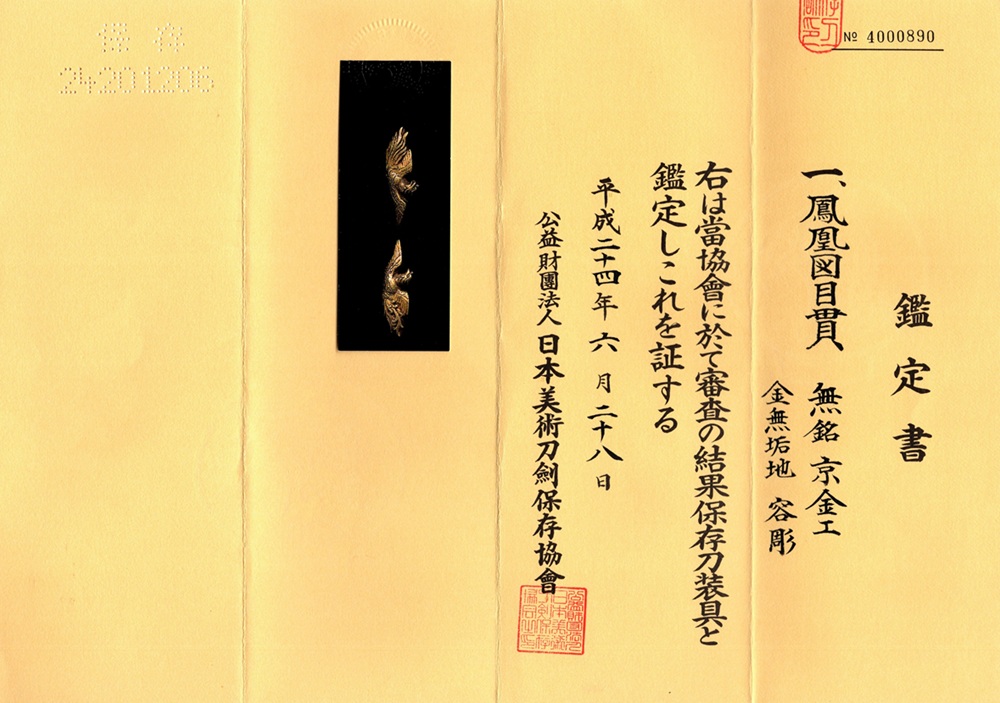 № 4000890
鑑定書
一、鳳凰図目貫 無銘 京金工
金無垢地 容彫
右は當協會に於て審査の結果保存刀装具と
鑑定しこれを証する
平成二十四年六月二十八日
公益財團法人 日本美術刀劍保存協會
保存
24201206